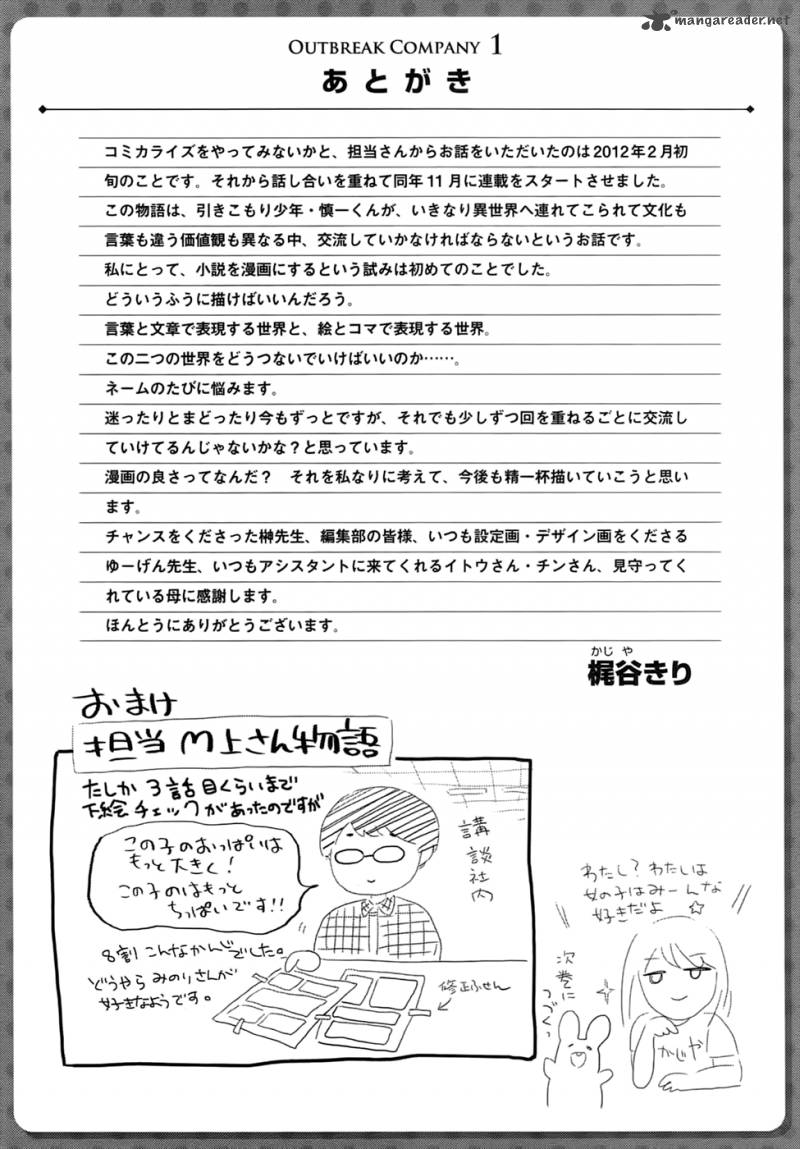 mangareader.net
OUTBREAK COMPANY 1
あとがき
コミカライズをやってみないかと、担当さんからお話をいただいたのは2012年2月初
旬のことです。それから話し合いを重ねて同年11月に連載をスタートさせました。
この物語は、引きこもり少年・慎一くんが、いきなり異世界へ連れてこられて文化も
言葉も違う価値観も異なる中、交流していかなければならないというお話です。
私にとって、小説を漫画にするという試みは初めてのことでした。
どういうふうに描けばいいんだろう。
言葉と文章で表現する世界と、絵とコマで表現する世界。
この二つの世界をどうつないでいけばいいのか……。
ネームのたびに悩みます。
迷ったりとまどったり今もずっとですが、それでも少しずつ回を重ねるごとに交流し
ていけてるんじゃないかな？と思っています。
漫画の良さってなんだ？　それを私なりに考えて、今後も精一杯描いていこうと思い
ます。
チャンスをくださった榊先生、編集部の皆様、いつも設定画・デザイン画をくださる
ゆーげん先生、いつもアシスタントに来てくれるイトウさん・チンさん、見守ってく
れている母に感謝します。
ほんとうにありがとうございます。
かじや
梶谷きり
おまけ
担当 M上さん物語
たしか 3話目くらいまで
下絵チェックがあったのですが
この子のおっぱいは
もっと大きく！
この子のはもっと
ちっぱいです！！
講談社内
8割こんなかんじでした。
どうやら みのりさんが
好きなようです。
修正ふせん
わたし？わたしは
女の子はみーんな
好きだよ☆
次巻に
つづくっ
かじや